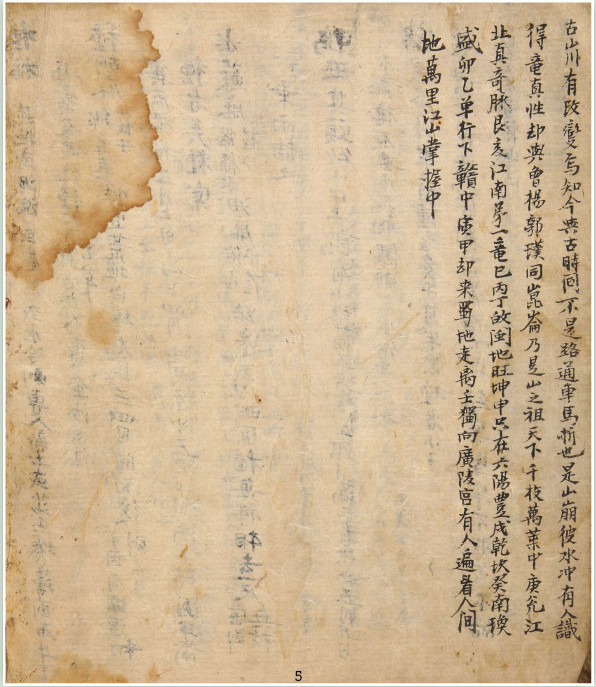 古山川有改變焉知今與古時同不是路通車馬損也是山崩彼水冲有人識
得竜真性却與曾楊郭璞同崑崙乃是山之祖天下千枝萬葉中庚兊江
北真奇脉艮亥江南第一竜巳丙丁故閩地旺坤申只在六陽豊戌乾坎癸南
盛卯乙单行下贛中寅甲却来蜀地走禹壬獨向廣陵宮有人遍看人間
地萬里江山掌握中
5